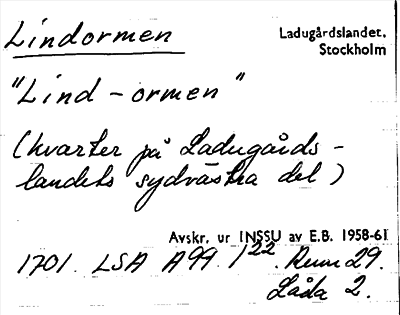 Lindormen
Ladugårdslandet.
Stockholm
"Lind-ormen"
(kvarter på Ladugårds-
landets sydvästra del)
Avskr. ur INSSU av E.B. 1958-61
1701. LSA A99. 1 22. Rum 29.
Låda 2.